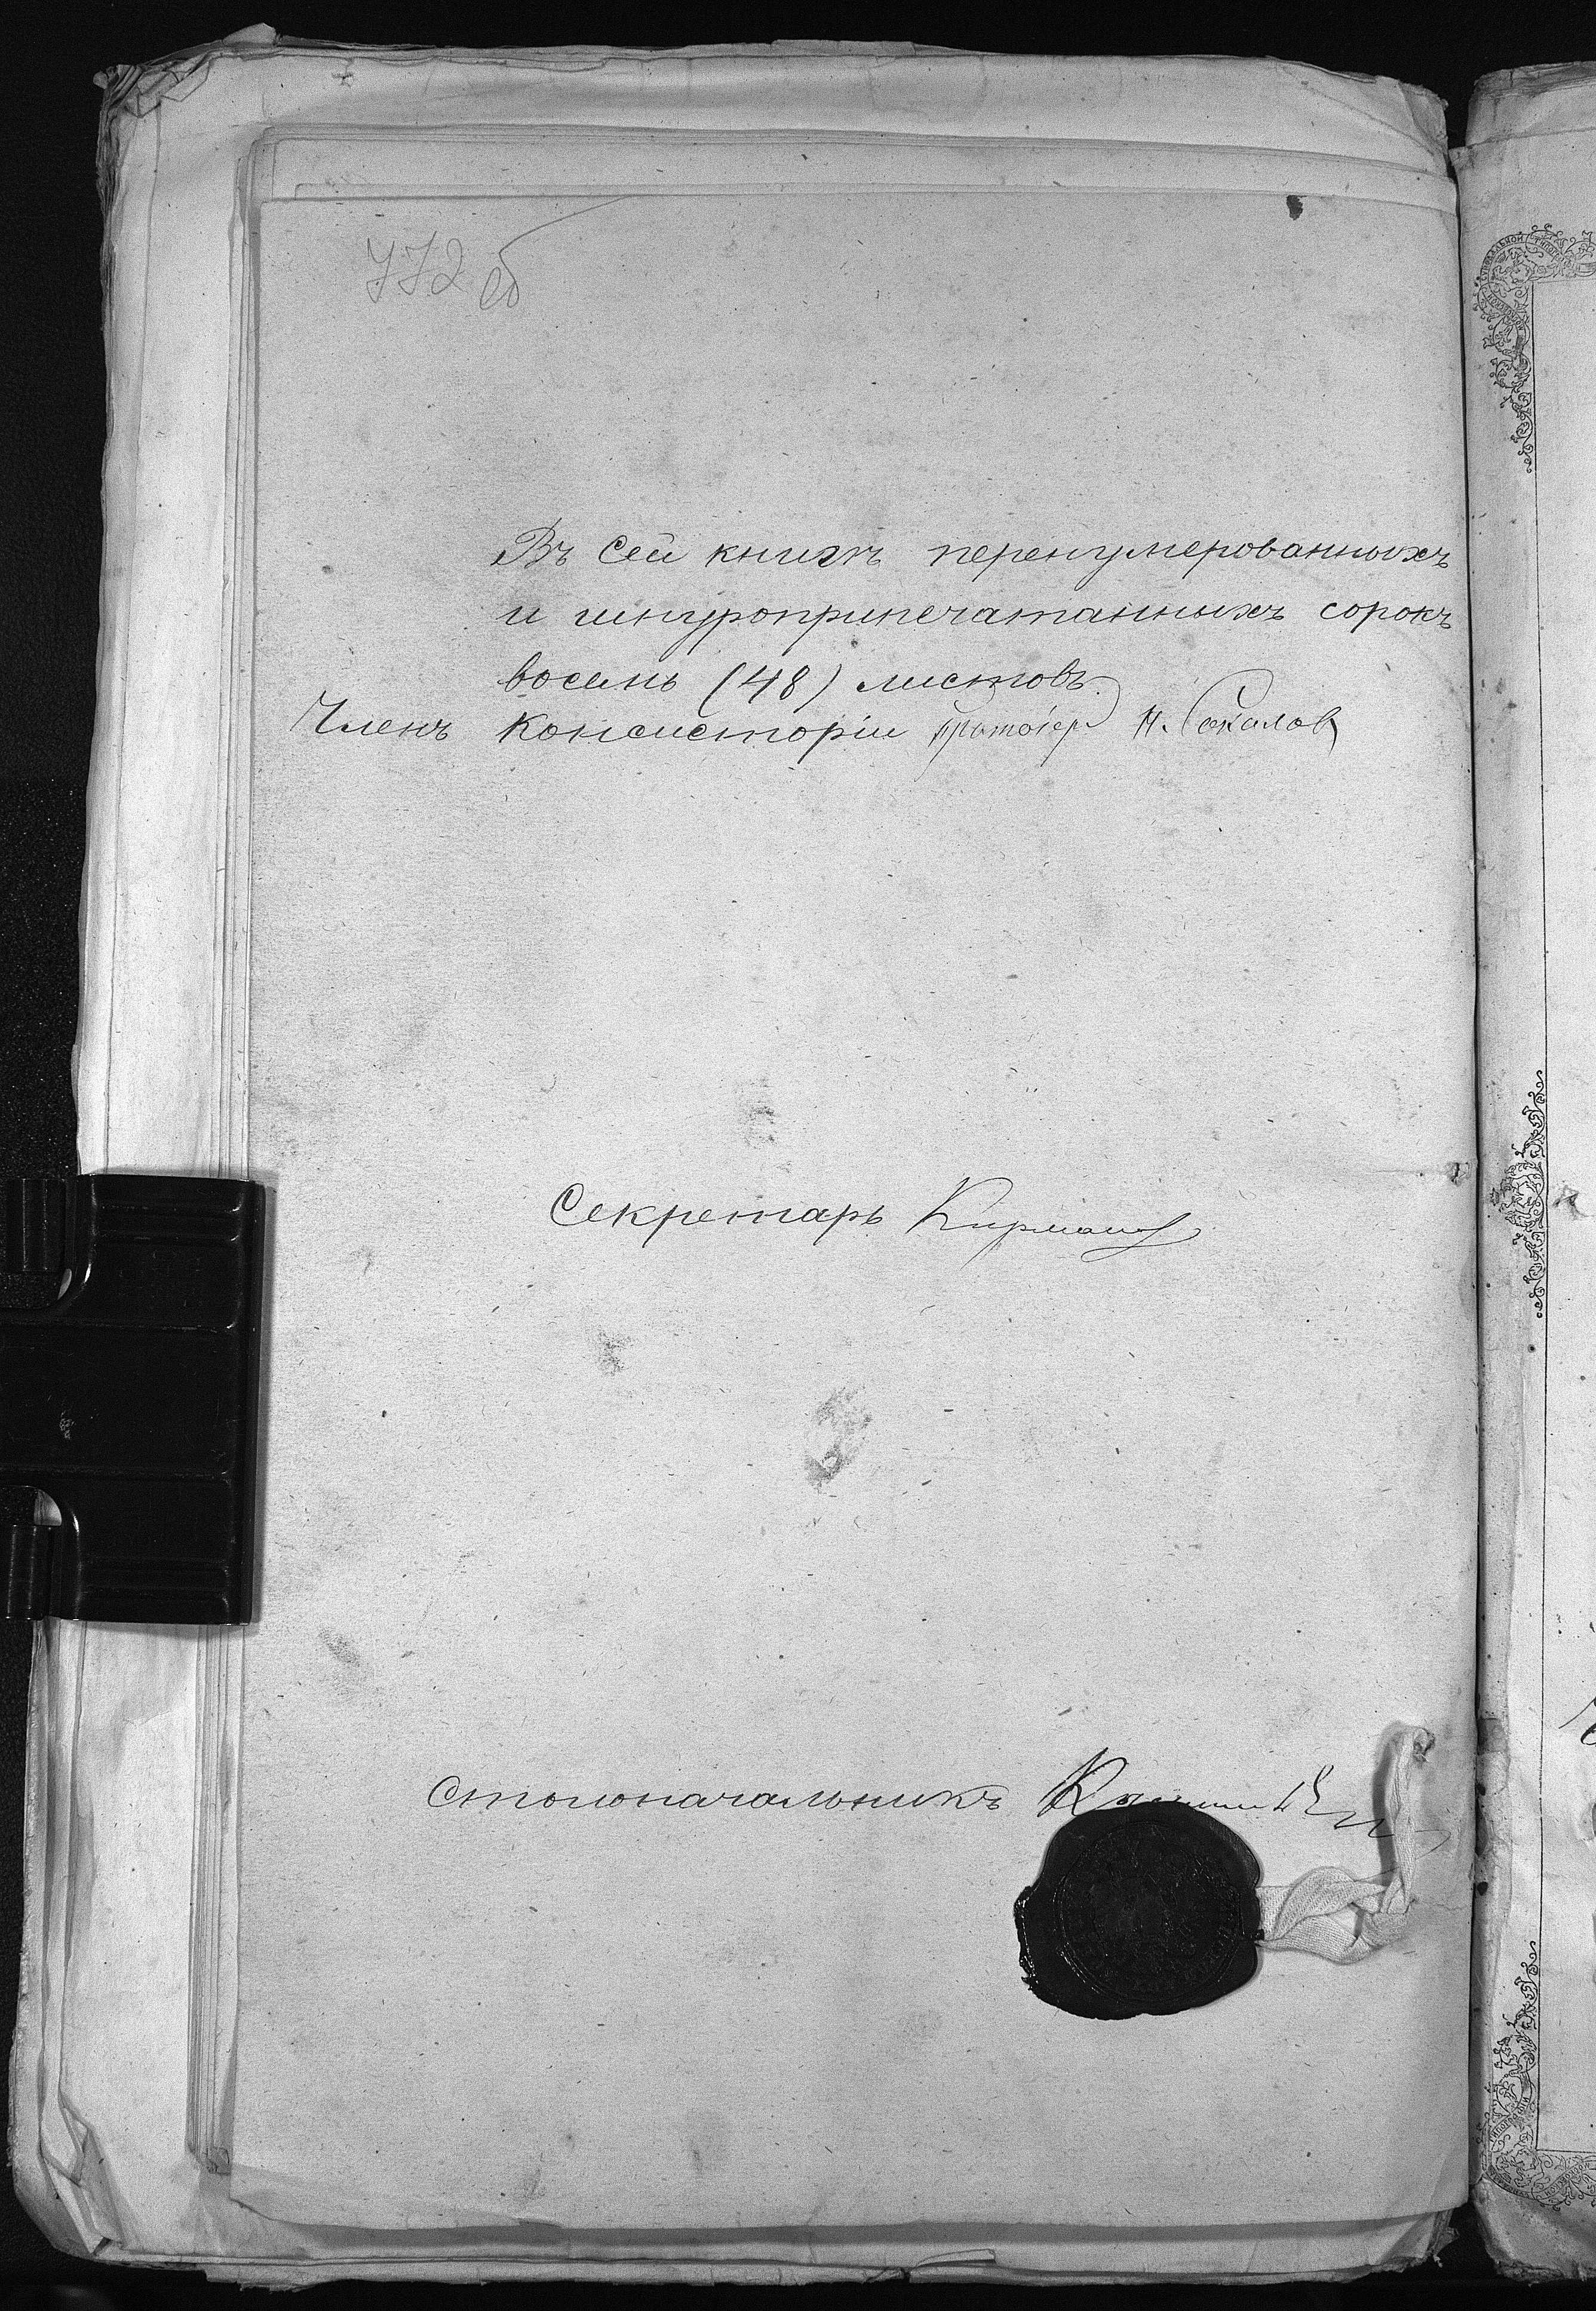 772 об
Въ сей книгѣ перенумерованныхъ
и шнуроприпечатанныхъ сорокъ
восемь (48) листовъ.
Членъ Консисторіи Протоіер. Н. Соколовъ
Секретарь
Столоначальникъ